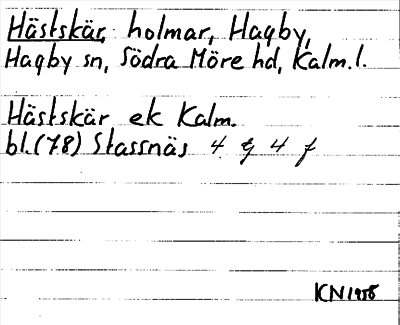 Hästskär, holmar, Hagby,
Hagby sn, Södra Möre hd, Kalm. l.
Hästskär ek Kalm.
bl. (78) Stassnäs 4 g 4 f
KN 1958